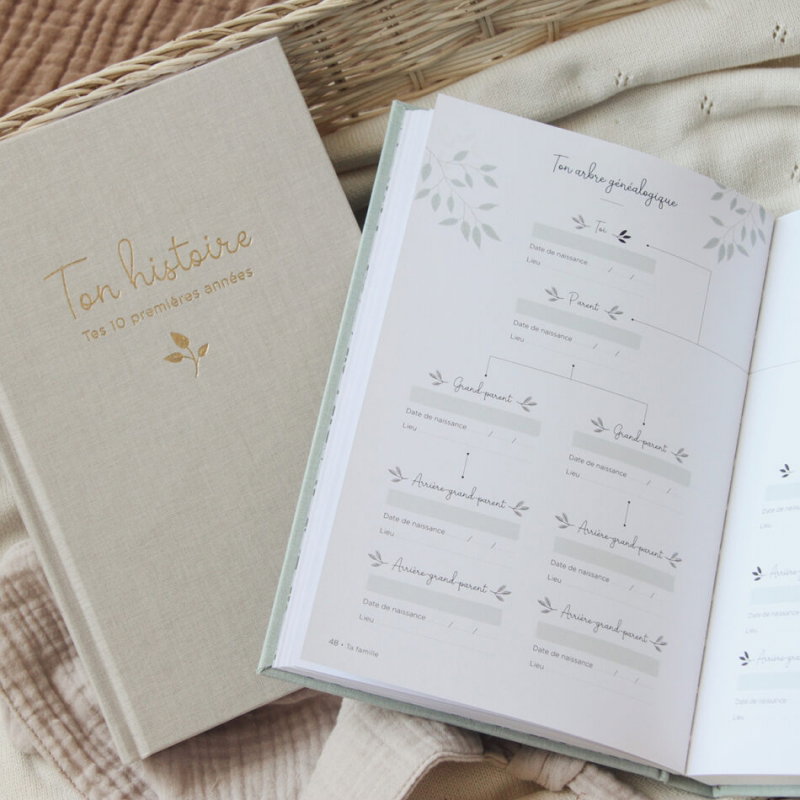 Ton histoire
Tes 10 premières années
Ton arbre généalogique
Toi
Date de naissance / /
Lieu
Parent
Date de naissance / /
Lieu
Grand-parent
Date de naissance / /
Lieu
Grand-parent
Date de naissance / /
Lieu
Arrière-grand-parent
Date de naissance / /
Lieu
Arrière-grand-parent
Date de naissance / /
Lieu
Arrière-grand-parent
Date de naissance / /
Lieu
Arrière-grand-parent
Date de naissance / /
Lieu
48 • Ta famille
Lieu
Lieu
Lieu